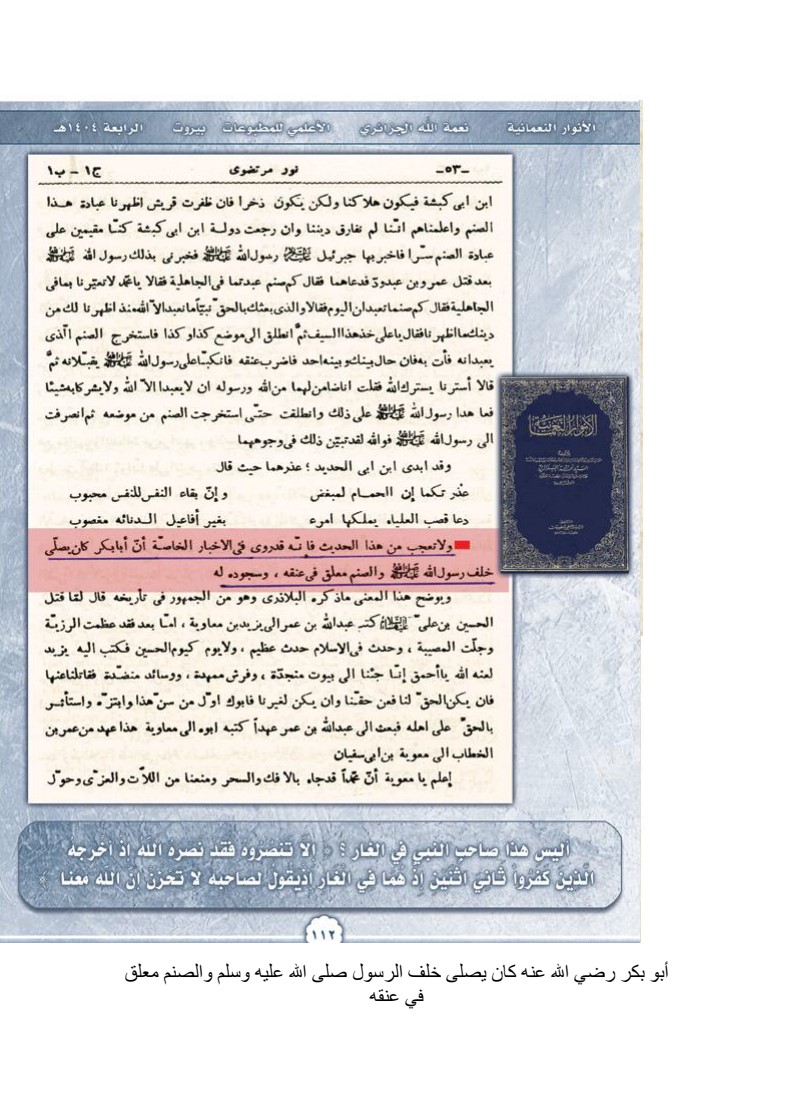 الأنوار النعمانية نعمة الله الجزائري الأعلمي للمطبوعات بيروت الرابعة ١٤٠٤هـ
ـ٥٣ـ نور مرتضوى ج١ - ب١
ابن ابى كبشة فيكون هلاكنا ولكن يكون ذخرا فان ظفرت قريش اظهرنا عبادة هذا
الصنم واعلمناهم انّنا لم نفارق ديننا وان رجعت دولة ابن ابى كبشة كنّا مقيمين على
عبادة الصنم سرّا فاخبر بها جبرئيل عليه السلام رسول الله ﷺ فخبرنى بذلك رسول الله ﷺ
بعد قتل عمرو بن عبدود فدعاهما فقال كم صنم عبدتما فى الجاهلية فقالا يا محمد لاتعيّرنا بمافى
الجاهلية فقال كم صنما تعبدان اليوم فقالا والذى بعثك بالحق نبيّا ما نعبد الاّ الله منذ اظهرنا لك من
دينك ما اظهرنا فقال يا على خذ هذا السيف ثمّ انطلق الى موضع كذا و كذا فاستخرج الصنم الّذى
يعبدانه فأت به فان حال بينك و بينه احد فاضرب عنقه فانكبّا على رسول الله ﷺ يقبّلانه ثمّ
قالا أسترنا يسترك الله فقلت انا ضامن لهما من الله ورسوله ان لايعبدا الاّ الله ولايشركا به شيئا
فعا هدا رسول الله ﷺ على ذلك وانطلقت حتّى استخرجت الصنم من موضعه ثم انصرفت
الى رسول الله ﷺ فوالله لقد تبيّن ذلك فى وجوههما
وقد ابدى ابن ابى الحديد ؛ عذرهما حيث قال
عُذر تكما إن الحمام لمبغض وإنّ بقاء النفس للنفس محبوب
دعا قصب العلياء يملكها امرء بغير أفاعيل الدنائه مغصوب
ولاتعجب من هذا الحديث فانّه قدروى فى الاخبار الخاصّة أنّ أبابكر كان يصلّى
خلف رسول الله ﷺ والصنم معلق فى عنقه ، وسجوده له
ويوضح هذا المعنى ماذكره البلاذرى وهو من الجمهور فى تأريخه قال لمّا قتل
الحسين بن علىّ عليه السلام كتب عبدالله بن عمر الى يزيد بن معاوية ، امّا بعد فقد عظمت الرزيّة
وجلّت المصيبة ، وحدث فى الاسلام حدث عظيم ، ولايوم كيوم الحسين فكتب اليه يزيد
لعنه الله يا أحمق إنّنا جئنا الى بيوت منجدّة ، وفرش ممهدة ، ووسائد منضّدة فقاتلنا عنها
فان يكن الحقّ لنا فعن حقّنا وان يكن لغيرنا فابوك اوّل من سنّ هذا وابتزّه واستأثر
بالحقّ على اهله فبعث الى عبدالله بن عمر عهداً كتبه ابوه الى معاوية هذا عهد من عمر بن
الخطاب الى معوية بن ابى سفيان
إعلم يا معوية أنّ محمّداً قدجاء بالافك والسحر ومنعنا من اللاّت والعزّى وحوّل
الأنوار النعمانية
أليس هذا صاحب النبي في الغار ؟ ﴿ إلاّ تنصروه فقد نصره الله اذ أخرجه
الّذين كفروا ثاني اثنين إذ هما في الغار إذيقول لصاحبه لا تحزن ان الله معنا ﴾
١١٢
أبو بكر رضي الله عنه كان يصلى خلف الرسول صلى الله عليه وسلم والصنم معلق
في عنقه